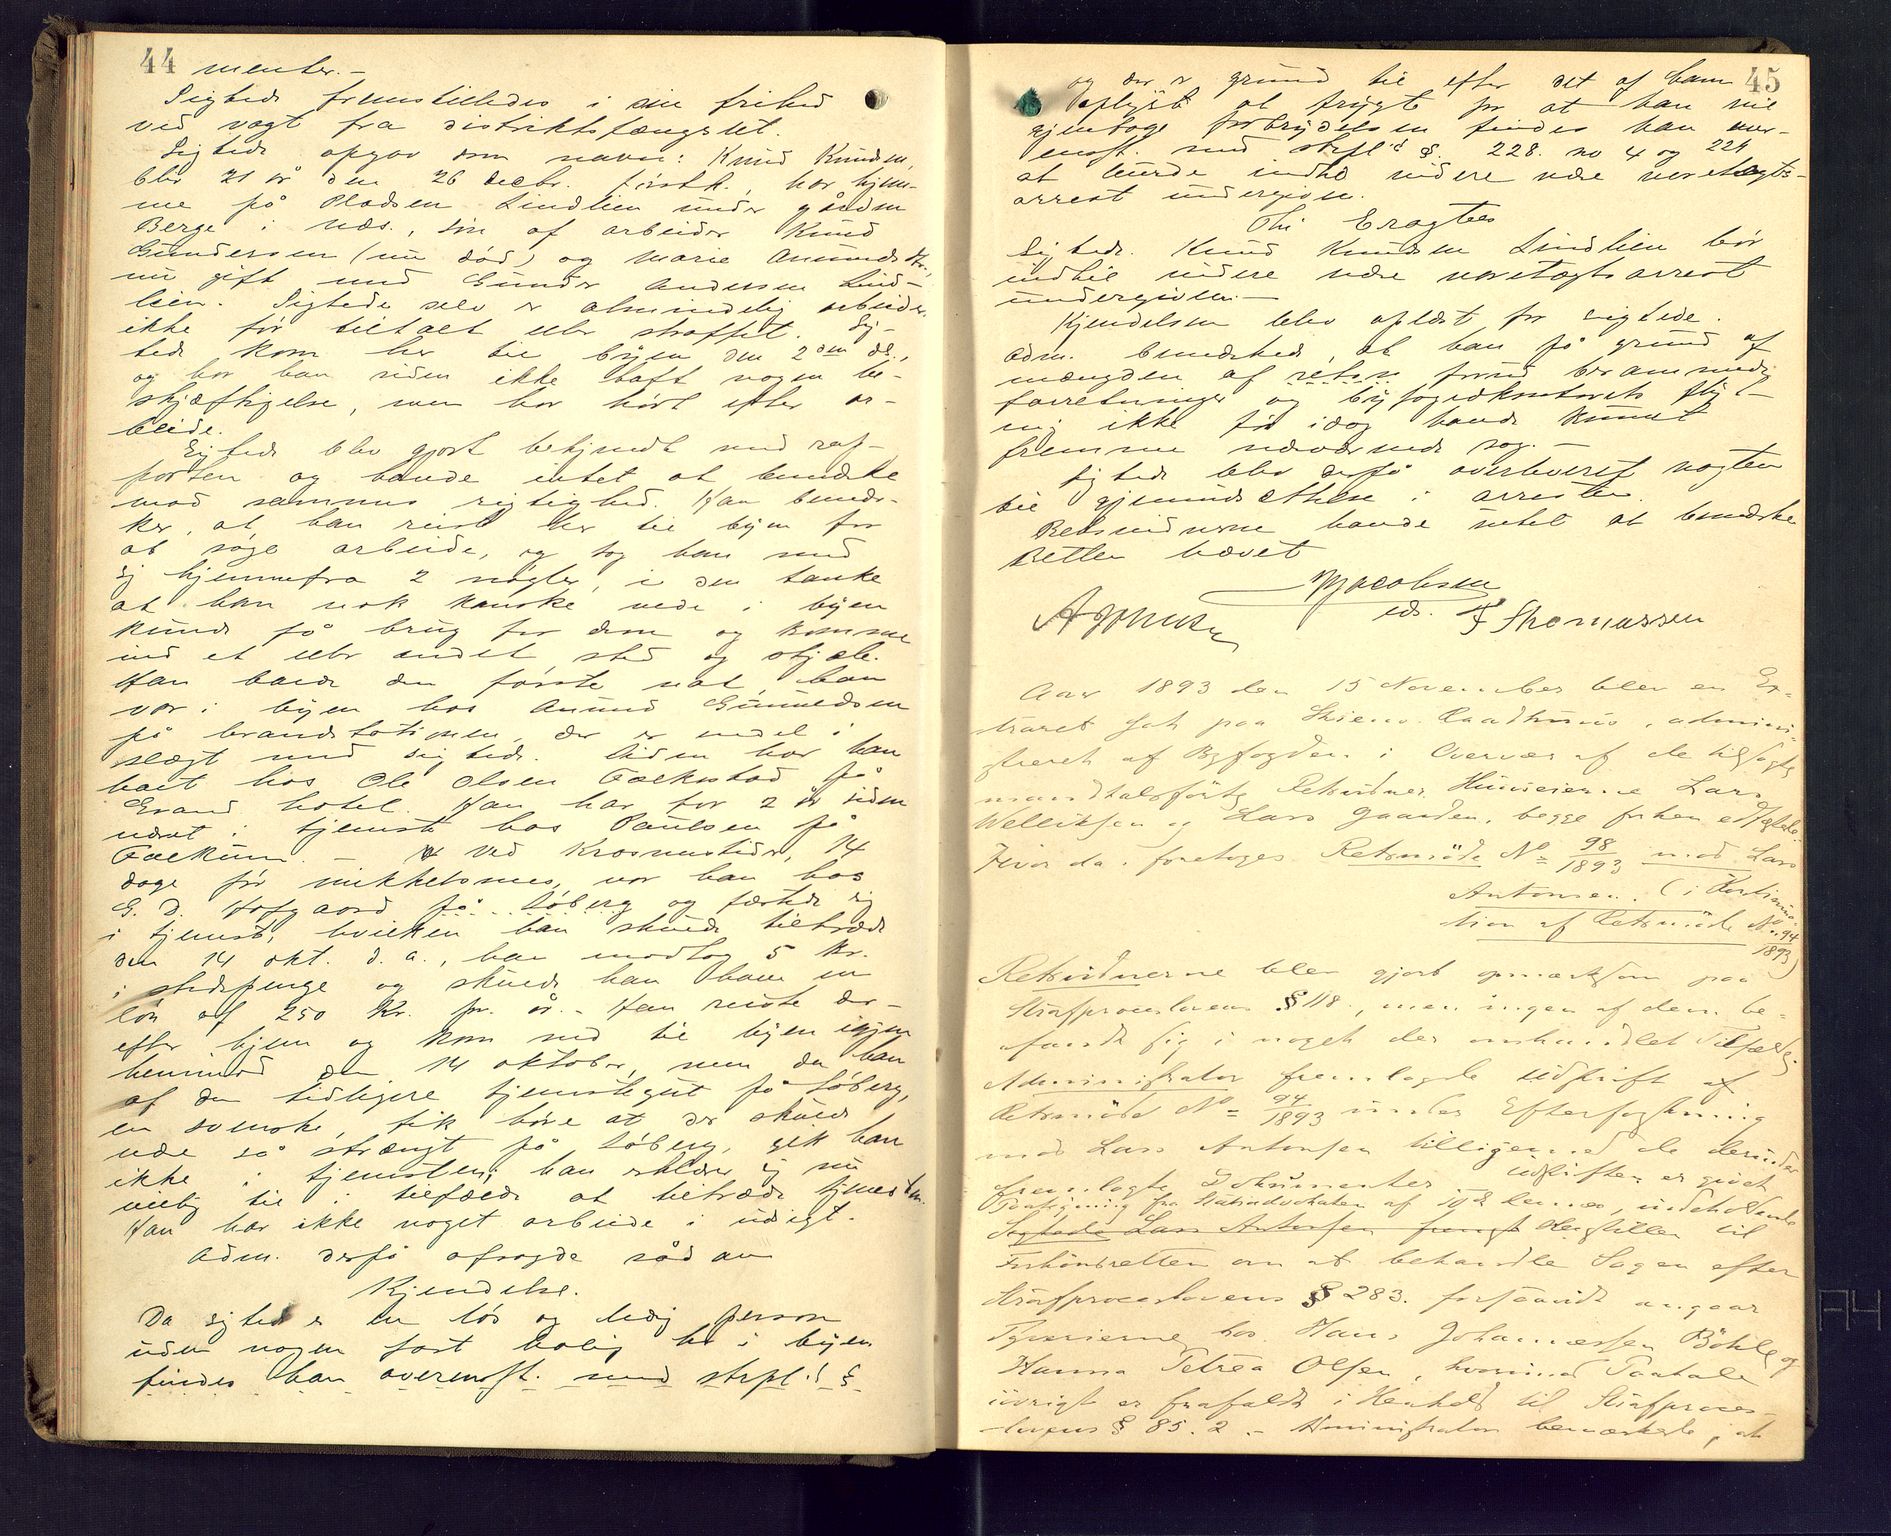 44 menter. -
Sigtede fremstilledes i sin frihed
ved vagt fra distriktsfængslet.
Sigtede opgav som navn: Knud Knudsen,
blir 21 år den 26 decbr. førstk., har hjem-
me på Pladsen Lindlien under gården
Berge i Næs, søn af arbeider Knud
Gundersen (nu død) og Marie Amundsdtr.,
nu gift med Gunder Andersen Lind-
lien. Sigtede selv er almindelig arbeider,
ikke før tiltalt eller straffet. Sig-
tede kom her til byen den 2den ds.,
og har han siden ikke havt nogen be-
skjæftigelse, men har hørt efter ar-
beide.
Sigtede blev gjort bekjendt med rap-
porten og havde intet at bemærke
mod sammes rigtighed. Han bemær-
ker, at han reiste her til byen for
at søge arbeide, og tog han med
sig hjemmefra 2 nøgler, i den tanke
at han nok kanske nede i byen
kunde få brug for dem og komme
ind et eller andet sted og stjæle.
Han boede den første nat han
var i byen hos Amund Gunuldsen
på brandstationen, der er endel i
slægt med sigtede. Siden har han
boet hos Ole Olsen Folkestad på
Grand hotel. Han har for 2 år siden
været i tjeneste hos Paulsen på
Folkum. - Ved Krosmestider, 14
dage før mikkelsmes, var han hos
E. D. Hofgaard på Søberg og fæstede sig
i tjeneste, hvilken han skulde tiltræde
den 14 okt. d. a., han modtog 5 kr.
i fæstepenge og skulde han have en
løn af 250 kr. pr. år. - Han reiste der-
efter hjem og kom ned til byen igjen
henimod den 14 oktober, men da han
af den tidligere tjenestegut på Søberg,
en svenske, fik høre at der skulde
være så strængt på Søberg, gik han
ikke i tjenesten; han erklærer sig nu
villig til i tilfælde at tiltræde tjenesten.
Han har ikke noget arbeide i udsigt.
Adm. derpå afsagde sådan
Kjendelse.
Da sigtede er en løs og ledig person
uden nogen fast bolig her i byen
findes han overensst. med strpl.'s §
45
og der er grund til efter det af ham
oplyst at frygte for at han vil
gjentage forbrydelsen findes han over-
ensst. med strpl's §. 228. no 4 og 229
at burde indtil videre være varetægts-
arrest undergiven.
Thi Eragtes
Sigtede Knud Knudsen Lindlien bør
indtil videre være varetægtsarrest
undergiven. -
Kjendelsen blev oplæst for sigtede.
Adm. bemærkede, at han på grund af
mængden af retten forud berammede
forretninger og byfogedkontorets flyt-
ning ikke før idag havde kunnet
fremme nærværende sag. -
Sigtede blev derpå overleveret vagten
til gjenindsættelse i arresten.
Retsvidnerne havde intet at bemærke
Retten hævet
Jacobsen
eds.
T Thomassen
Aar 1893 den 15 November blev en Ex-
traret sat paa Skiens Raadhuus, admini-
streret af Byfogden i Overvær af de tilsagte
mandtalsførte Retsvidner Huuseierne Lars
Welliksen og Lars Gaarden, begge forhen edfæstede.
Hvor da foretoges Retsmøde No 98/1893 mod Lars
Antonsen. (i Kontinua-
tion af Retsmøde No. 94
1893)
Retsvidnerne blev gjort opmærksom paa
Strafproceslovens § 118, men ingen af dem be-
fandt sig i noget der omhandlet Tilfælde.
Administrator fremlagde Udskrift af
Retsmøde No 94/1893 under Efterforskning
mod Lars Antonsen tilligemed de derunder
fremlagte Dokumenter. Udskriften er givet
Paategning fra Statsadvokaten af 10de dennes, indeholdende
Sigtede Lars Antonsen Henstillen til
Forhørsretten om at behandle Sagen efter
Strafproceslovens § 283. forsaavidt angaar
Tyverierne hos Hans Johannessen Bøhle og
Hanna Petrea Olsen, hvorimod Paatale
iøvrigt er frafaldt i Henhold til Strafproces-
lovens § 85. 2. - Administrator bemærkede, at